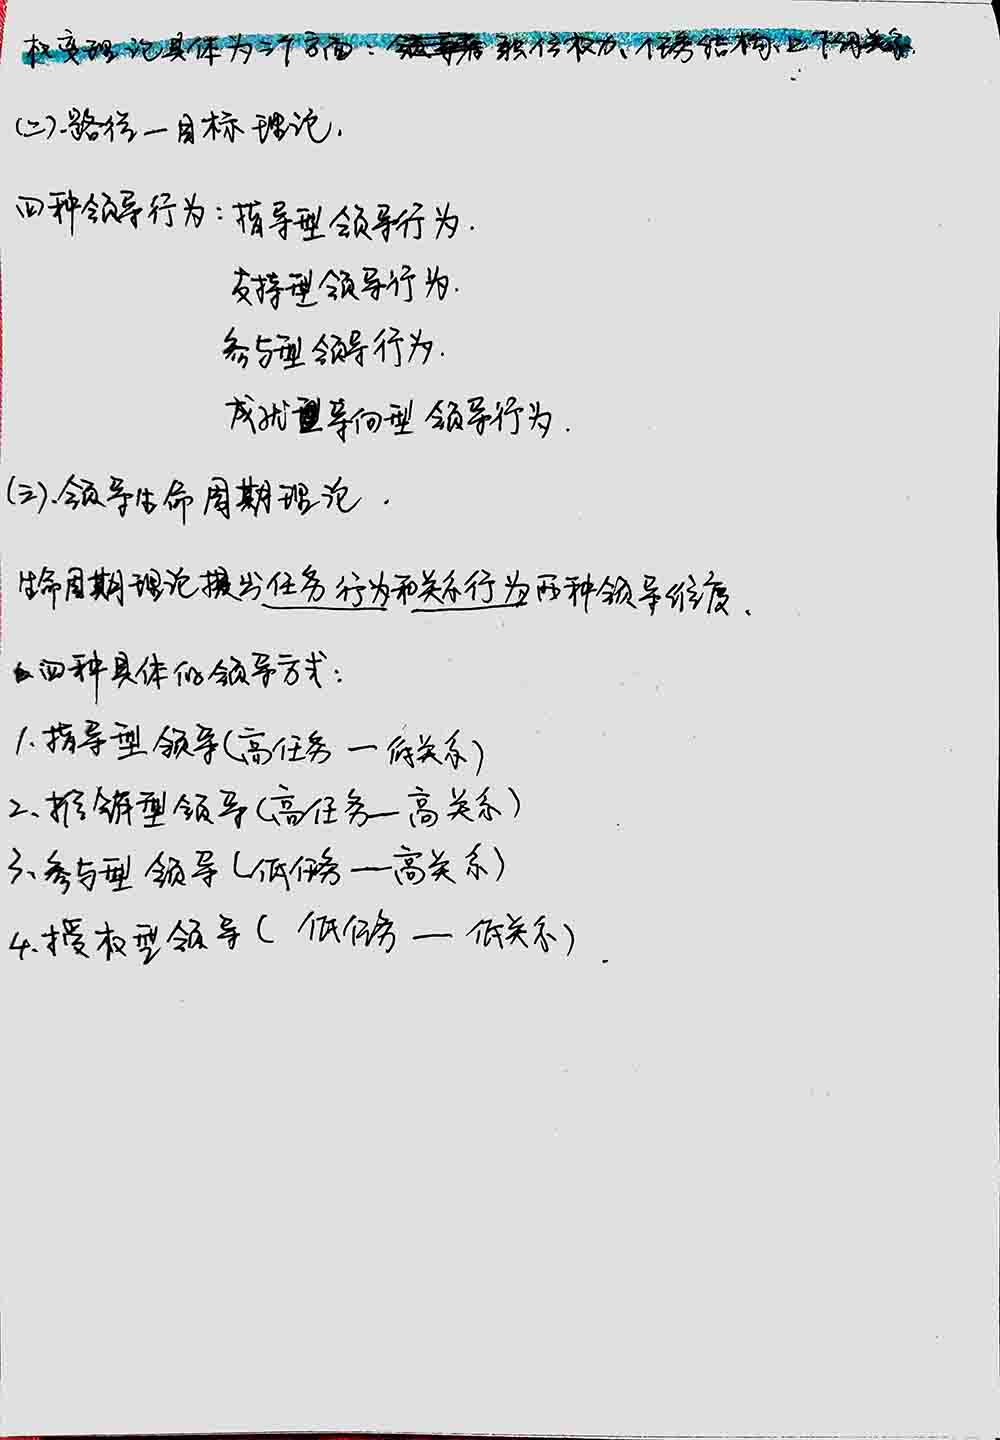 权变理论具体为三个方面：职位权力、任务结构、上下级关系.
(二).路径—目标理论.
四种领导行为：指导型领导行为.
支持型领导行为.
参与型领导行为.
成就导向型领导行为.
(三).领导生命周期理论.
生命周期理论提出任务行为和关系行为两种领导维度.
四种具体的领导方式：
1.指导型领导(高任务—低关系)
2、推销型领导(高任务—高关系)
3、参与型领导(低任务—高关系)
4.授权型领导(低任务—低关系).